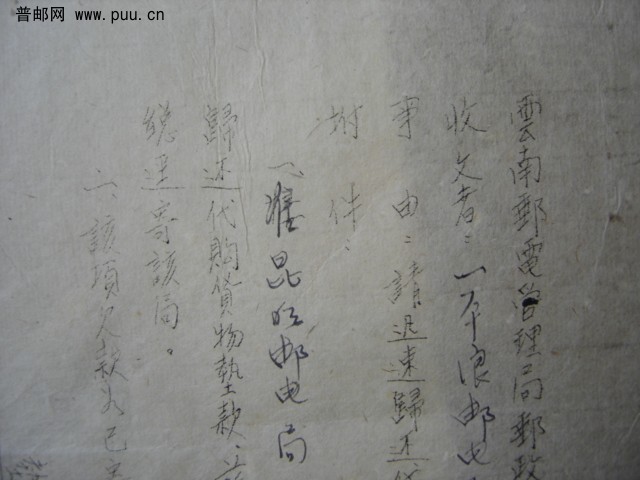 普邮网 www.puu.cn
雲南郵電管理局郵政
收文者：一平浪邮电
事由：請迅速歸还代
附件：
一、准昆明邮电局
歸还代購貨物墊款，
逕寄該局。
二、該項欠款如已